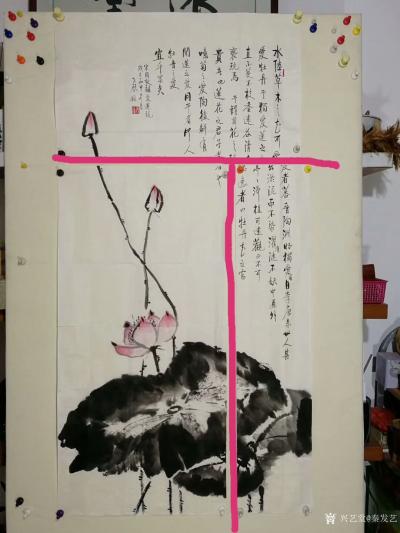 水陸草木之花可愛者蕃晉陶淵明獨愛菊自李唐來世人甚
愛牡丹予獨愛蓮之出淤泥而不染濯清漣不妖中通外
直不蔓不枝香遠益清亭亭淨植可遠觀不可
褻玩焉予謂菊花之隱逸者也牡丹花之富
貴者也蓮花之君子者也
噫菊之愛陶後鮮有
聞蓮之愛同予者何人
牡丹之愛
宜乎眾矣
宋周敦頤愛蓮說
兴艺堂@秦发艺